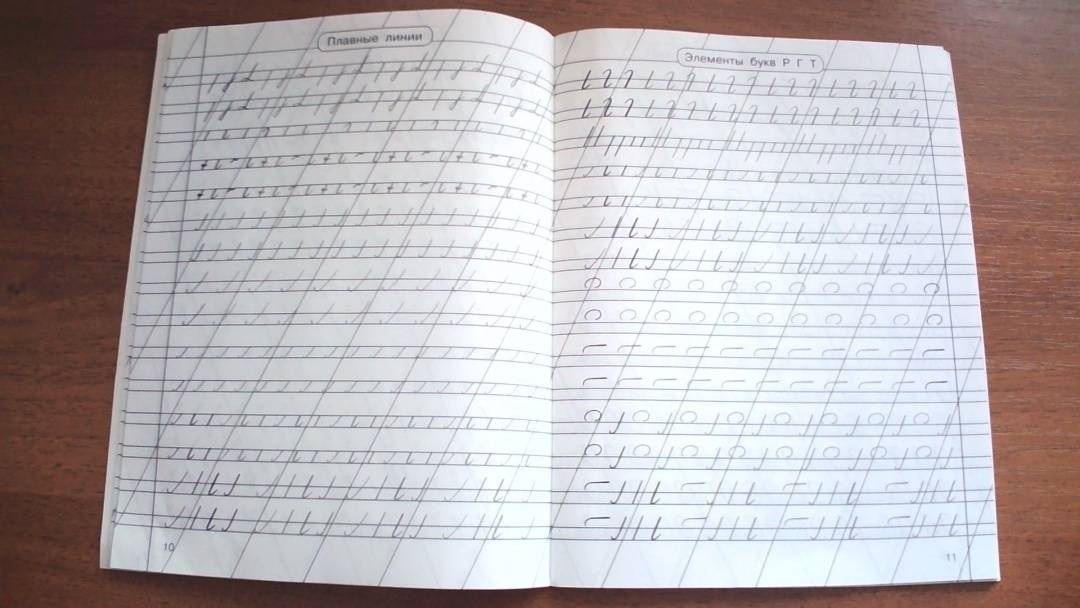 Плавные линии
10
Элементы букв Р Г Т
11